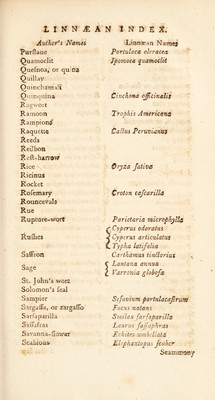 LINNÆAN INDEX.
Author's Names Linnæan Names
Purslane Portulaca oleracea
Quamoclit Ipomoea quamoclit
Quesnoa, or quina
Quillay
Quinchamali
Quinquina Cinchona officinalis
Ragwort
Ramoon Trophis Americana
Rampions
Raquette Cactus Peruvianus
Reeds
Reilbon
Rest-harrow
Rice Oryza sativa
Ricinus
Rocket
Rosemary Croton cascarilla
Rouncevals
Rue
Rupture-wort Parietaria microphylla
Cyperus odoratus
Rushes Cyperus articulatus
Typha latifolia
Saffron Carthamus tinctorius
Sage Lantana annua
Varronia globosa
St. John's wort
Solomon's seal
Sampier Sesuvium portulacastrum
Sargasso, or zargasso Fucus natans
Sarsaparilla Smilax sarsaparilla
Sassafras Laurus sassaphras
Savanna-flower Echites umbellata
Scabious Elephantopus scaber
Scammony